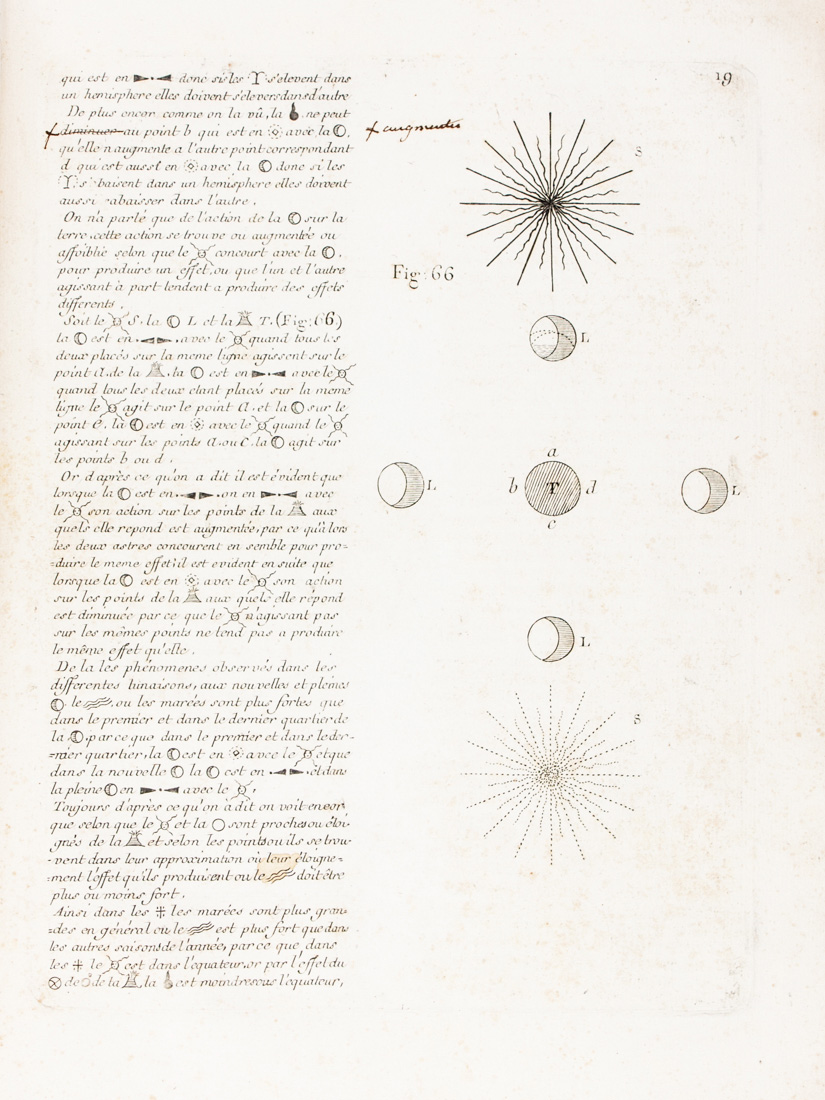 19
qui est en donc si les s'elevent dans
un hemisphere elles doivent s'elever dans l'autre
De plus encor comme on la vû, la ne peut
diminuer au point b qui est en avec la ,
augmenter
qu'elle n augmente a l'autre point correspondant
d qui est aussi en avec la donc si les
s'abaisent dans un hemisphere elles doivent
aussi abaisser dans l'autre .
On n'a parlé que de l'action de la sur la
terre, cette action se trouve ou augmentée ou
affoiblie selon que le concourt avec la ,
pour produire un effet, ou que l'un et l'autre
agissant à part tendent a produire des effets
differents .
Soit le S, la L et la T. (Fig: 66.)
la est en avec le quand tous les
deux placés sur la meme ligne agissent sur le
point a, de la , la est en avec le
quand tous les deux etant placés sur la meme
ligne le agit sur le point a, et la sur le
point C, la est en avec le quand le
agissant sur les points a, ou C, la agit sur
les points b ou d .
Or d'après ce qu'on a dit il est évident que
lorsque la est en on en avec
le son action sur les points de la aux
quels elle repond est augmentée, par ce qu'alors
les deux astres concourent en semble pour pro=
=duire le meme effet il est evident en suite que
lorsque la est en avec le son action
sur les points de la aux quels elle répond
est diminuée par ce que le n'agissant pas
sur les mêmes points ne tend pas a produire
le même effet qu'elle .
De la les phénomenes observés dans les
differentes lunaisons, aux nouvelles et pleines
le , ou les marées sont plus fortes que
dans le premier et dans le dernier quartier de
la , par ce que dans le premier et dans le der=
=nier quartier, la est en avec le et que
dans la nouvelle la est en et dans
la pleine en avec le ,
Toujours d'après ce qu'on a dit on voit encor
que selon que le et la sont proches ou éloi=
gnés de la et selon les points ou ils se trou=
-vent dans leur approximation ou leur éloigne=
=ment l'effet qu'ils produisent ou le doit être
plus ou moins fort .
Ainsi dans les les marées sont plus gran=
=des en général ou le est plus fort que dans
les autres saisons de l'année, par ce que dans
les le est dans l'equateur, or par l'effet du
de de la , la est moindre sous l'equateur,
S
Fig: 66
L
a
L b T d L
c
L
S